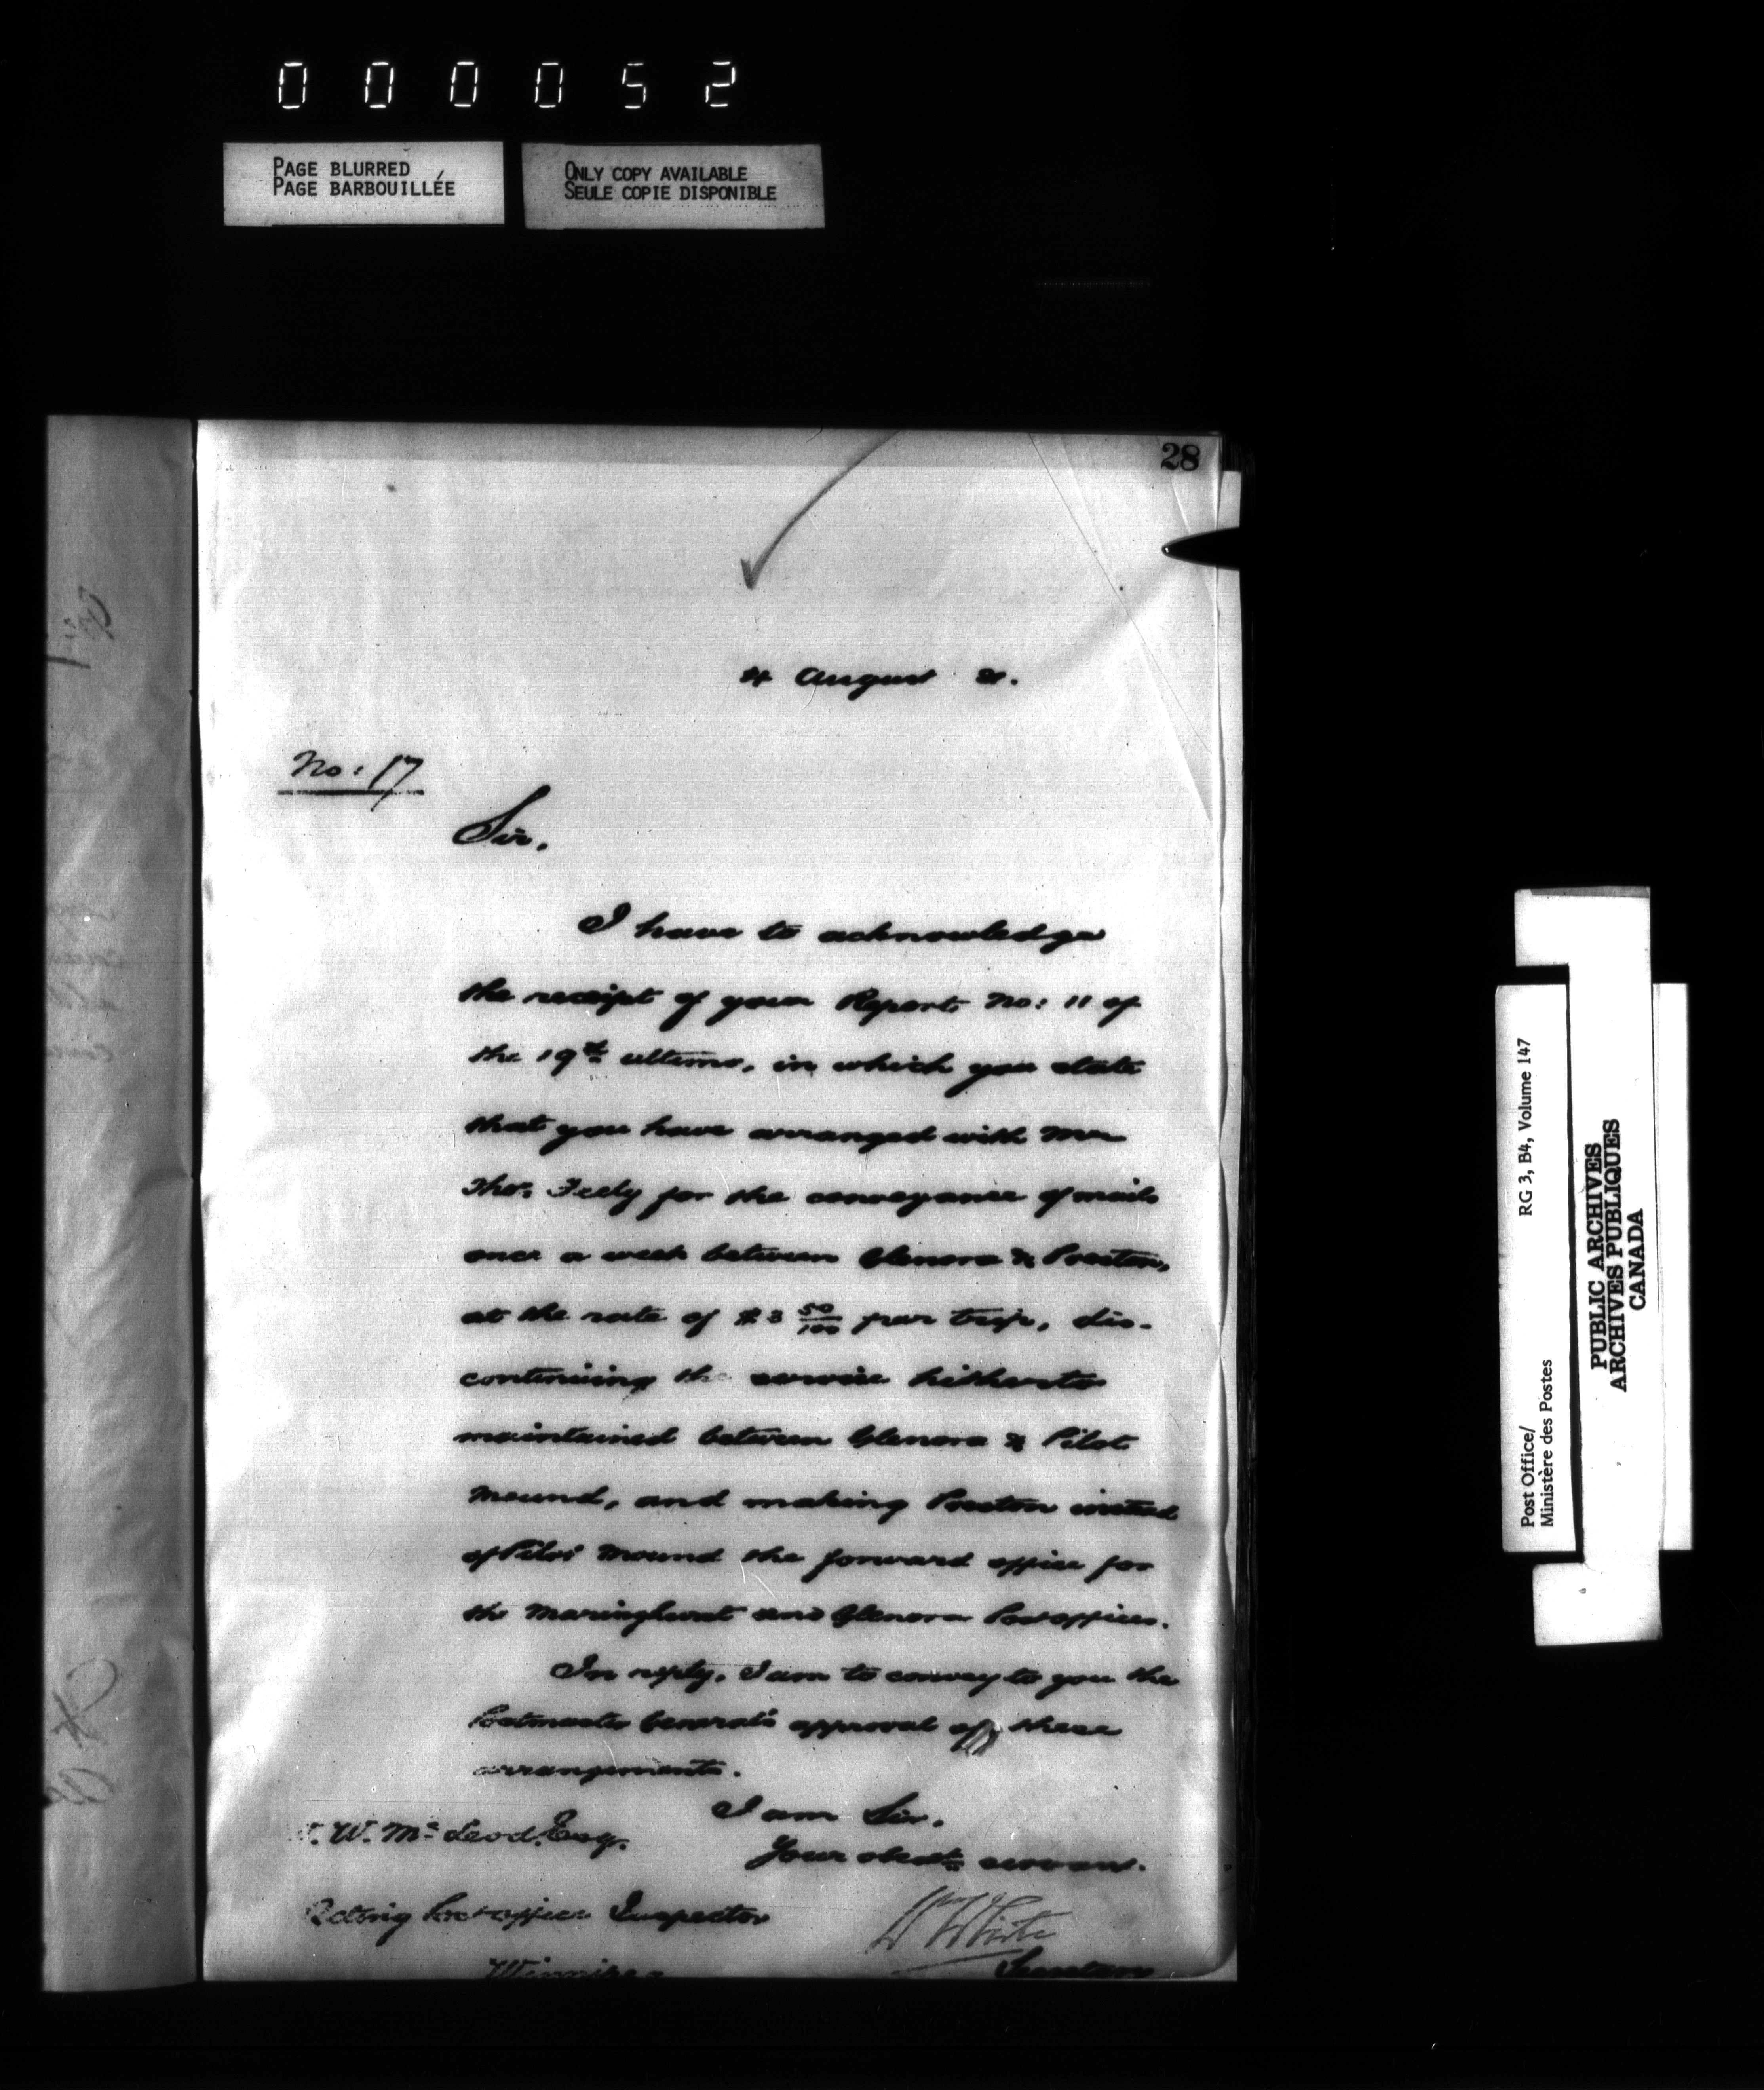 000052
PAGE BLURRED
PAGE BARBOUILLÉE
ONLY COPY AVAILABLE
SEULE COPIE DISPONIBLE
28
4 August
No: 17
Sir.
I have to acknowledge
the receipt of your Report No: 11 of
the 19th ultimo, in which you state
that you have arranged with Mr
Thos. Feely for the conveyance of mails
once a week between Glenora & Preston,
at the rate of $3 50/100 per trip, dis-
continuing the service hitherto
maintained between Glenora & Pilot
Mound, and making Preston instead
of Pilot Mound the forward office for
the Maringhurst and Glenora Post offices.
In reply, I am to convey to you the
Postmaster General's approval of these
arrangements.
I am Sir.
Your obedt. servant.
W. Mc Leod. Esq.
Acting Post office Inspector
Winnipeg
W White
Secretary
RG 3, B4, Volume 147
Post Office/
Ministère des Postes
PUBLIC ARCHIVES
ARCHIVES PUBLIQUES
CANADA